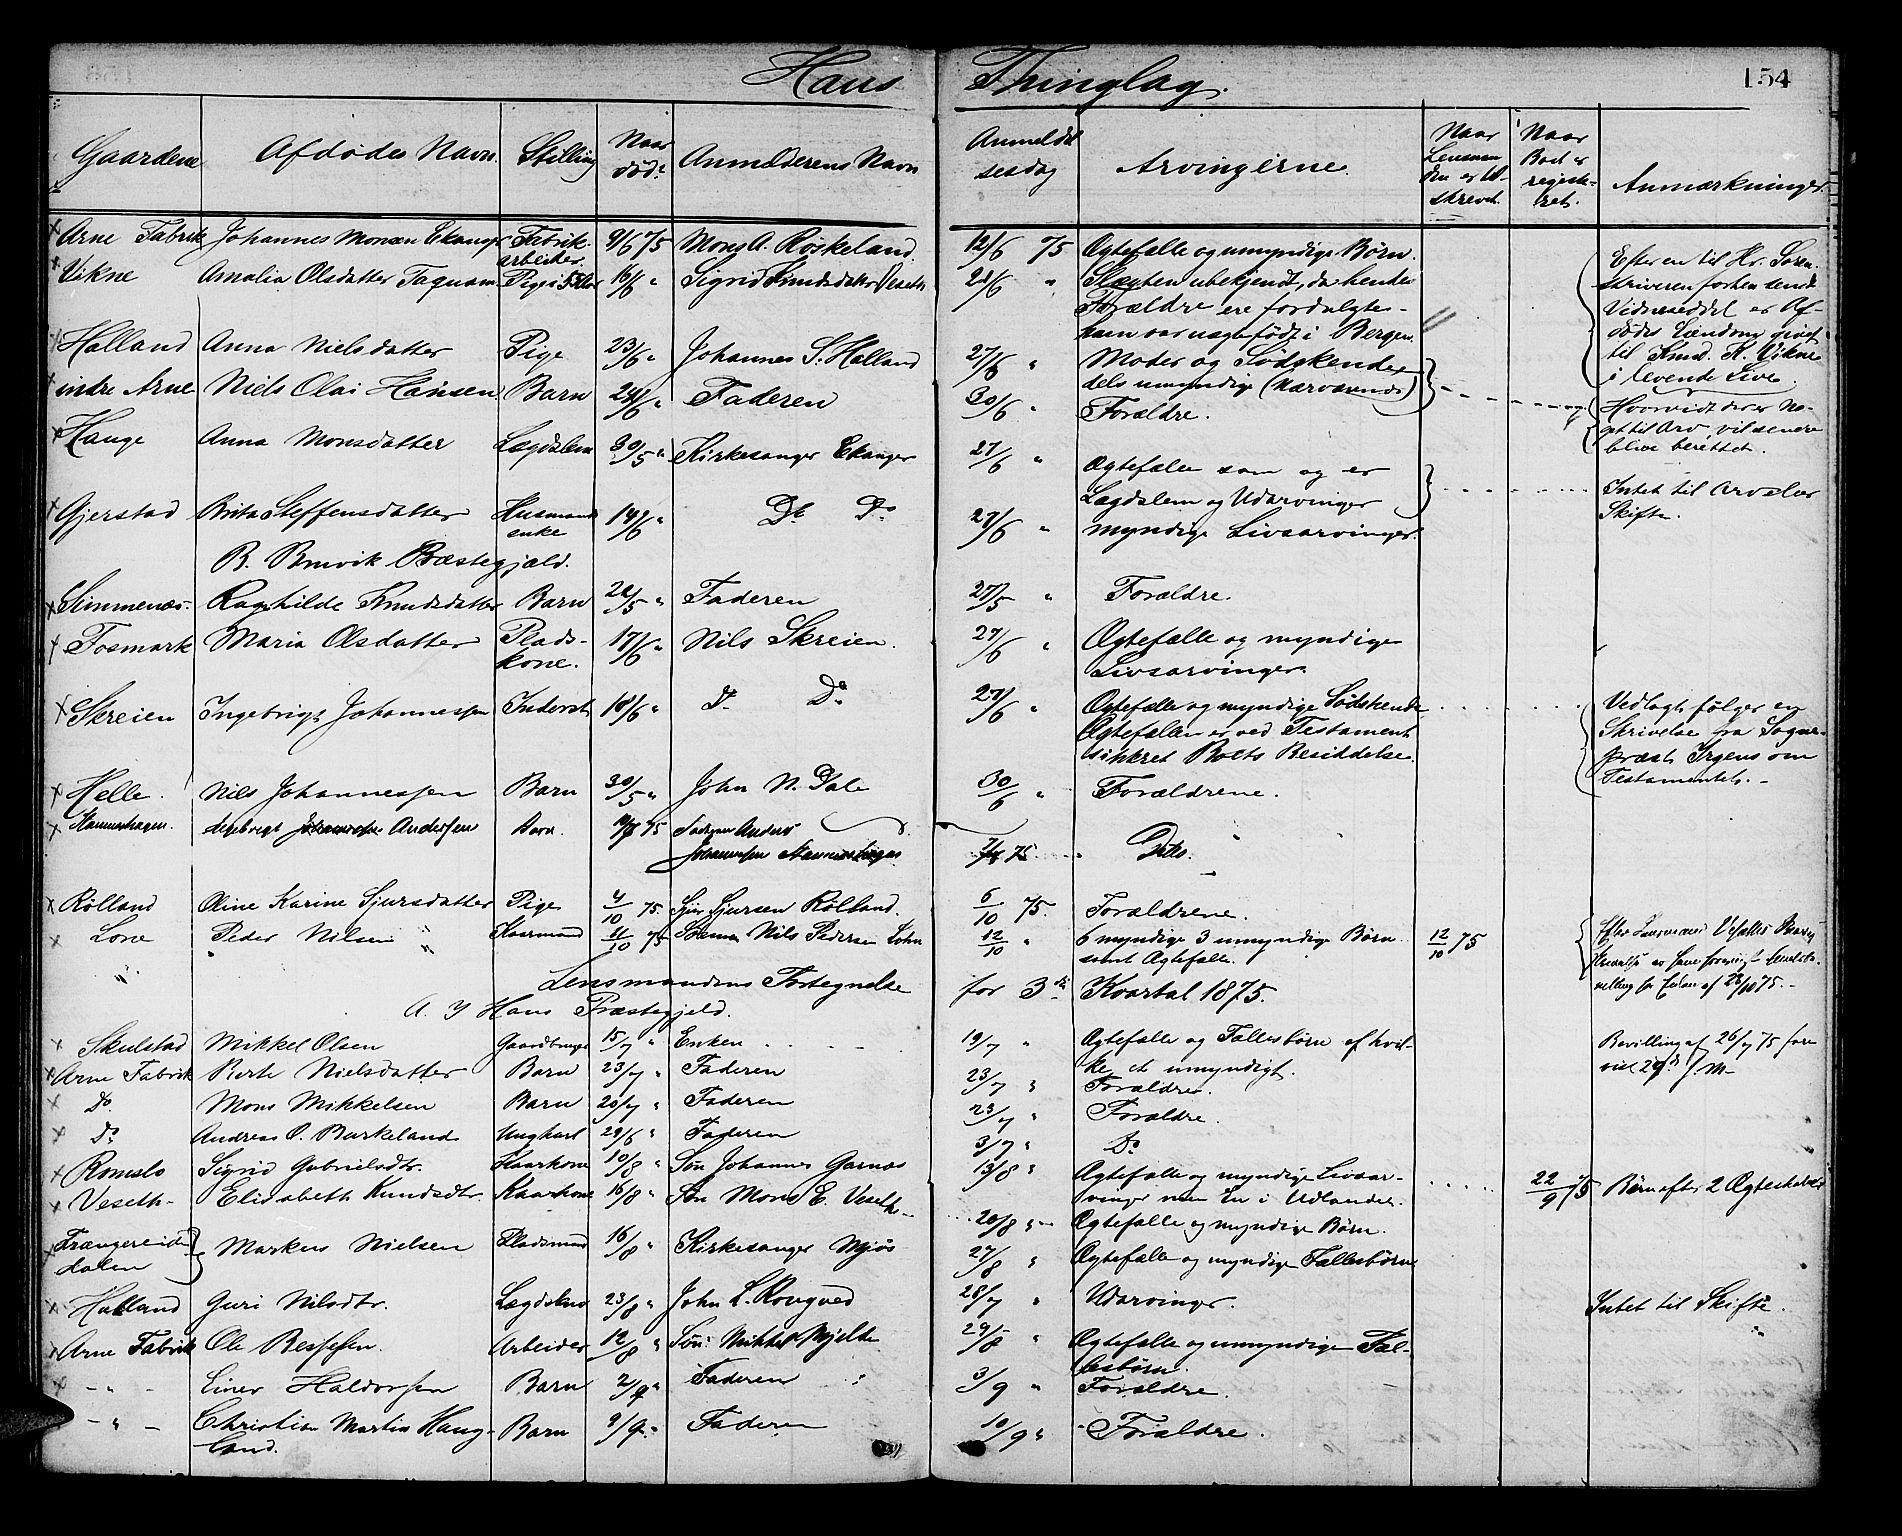 Haus Thinglag. 154
Gaardene Afdødes Navn. Stilling Naar død. Anmælderens Navn Anmeldelsesdag Arvingerne. Naar Lensmanden er tilskrevet. Naar Boet er registreret. Anmærkninger.
Arne Fabrik Johannes Monsen Ekanger Fabrikarbeider. 9/6 75 Mons A. Røskeland. 12/6 75 Ægtefælle og umyndige Børn.
Vikne Amalia Olsdatter Pige 16/6 " Sigrid Knudsdatter 21/6 " Slægten ubekjendt, da hendes
Forældre ere fordulgte-
hun var uægtefødt i Bergen.
Efter en til Hr. Soren-
skriveren forhen sendt
Vidneseddel er Af-
dødes Eiendom givet
til Knud K. Vikne
i levende Live.
Halland Anna Nielsdatter Pige 23/6 " Johannes S. Halland 27/6 " Moder og Sødskende
dels umyndige (Nærværende)
indre Arne Niels Olai Hansen Barn 24/6 " Faderen 30/6 " Forældre.
Hvorvidt der er No-
get til Arv vil senere
blive berettet.
Hauge Anna Monsdatter Lægdslem 30/5 " Kirkesanger Ekanger 27/6 " Ægtefælle som og er
Lægdslem og Udarvinger
Intet til Arv eller
Skifte.
Gjerstad Brita Steffensdatter Husmandsenke 14/6 " Do Do 27/6 " myndige Livsarvinger.
B. Bruvik Præstegjæld.
Simmenæs. Ragnhilde Knudsdatter Barn 22/5 " Faderen 27/5 " Forældre.
Fosmark Maria Olsdatter Pladskone. 17/6 " Nils Skreien. 27/6 " Ægtefælle og myndige
Livsarvinger.
Skreien Ingebrigt Johannessen Inderst 18/6 " Do Do 27/6 " Ægtefælle og myndige Sødskende
Ægtefællen er ved Testament
sikkret Boets Besiddelse.
Vedlagt følger en
Skrivelse fra Sogne-
præst Irgens om
Testamentet. -
Helle. Nils Johannessen Barn 30/5 " John N. Dale 30/6 " Forældrene.
Hammerhagen. Ingebrigt Andersen Barn. 75 Faderen Anders
Johannessen Hammerhagen 75 Ditto.
Rølland Oline Karine Sjursdatter Pige 4/10 75. Sjur Sjursen Rølland. 6/10 75. Forældrene.
Lone Peder Nilsen Kaarmand 11/10 75 Sønnen Nils Pedersen Lone 12/10 " 6 myndige 3 umyndige Børn
samt Ægtefælle. 12/10 75
Lensmandens Fortegnelse for 3die Kvartal 1875.
A. I Haus Præstegjeld.
Skulstad Mikkel Olsen Gaardbruger 15/7 " Enken 19/7 " Ægtefælle og Fællesbørn af hvil-
ke et umyndigt.
Bevilling af 26/7 75 fore-
vist
Arne Fabrik Berte Nielsdatter Barn 23/7 " Faderen 23/7 " Forældre.
Do Mons Mikkelsen Barn 20/7 " Faderen 23/7 " Forældre.
Do Andreas O. Birkeland Ungkarl 29/6 " Faderen 3/7 " Do
Romslo Sigrid Gabrielsdtr. Kaarkone 10/8 " Søn Johannes Garnæs 13/8 " Ægtefælle og myndige Livsar-
vinger men En i Udlandet. 22/9 75 Børn efter 2 Ægteskaber
Veseth. Elisabeth Knudsdtr. Kaarkone 16/8 " Søn Mons E. Veseth. 20/8 " Ægtefælle og myndige Børn.
Trængereid-
dalen Markus Nielsen Pladsmand 16/8 " Kirkesanger Mjøs 27/8 " Ægtefælle og myndige Fællesbørn
Halland Guri Nilsdtr. Lægdslem 23/8 " John L. Rongved 28/7 " Udarvinger. Intet til Skifte.
Arne Fabrik Ole Bessesen. Arbeider 12/8 " Søn Mikkel Mjelde 29/8 " Ægtefælle og umyndige Fæl-
lesbørn.
- " - Einer Haldorsen Barn 2/9 " Faderen 3/9 " Forældre.
- " - Christian Martin Haug-
land. Barn 9/9 " Faderen 10/9 " Forældre.